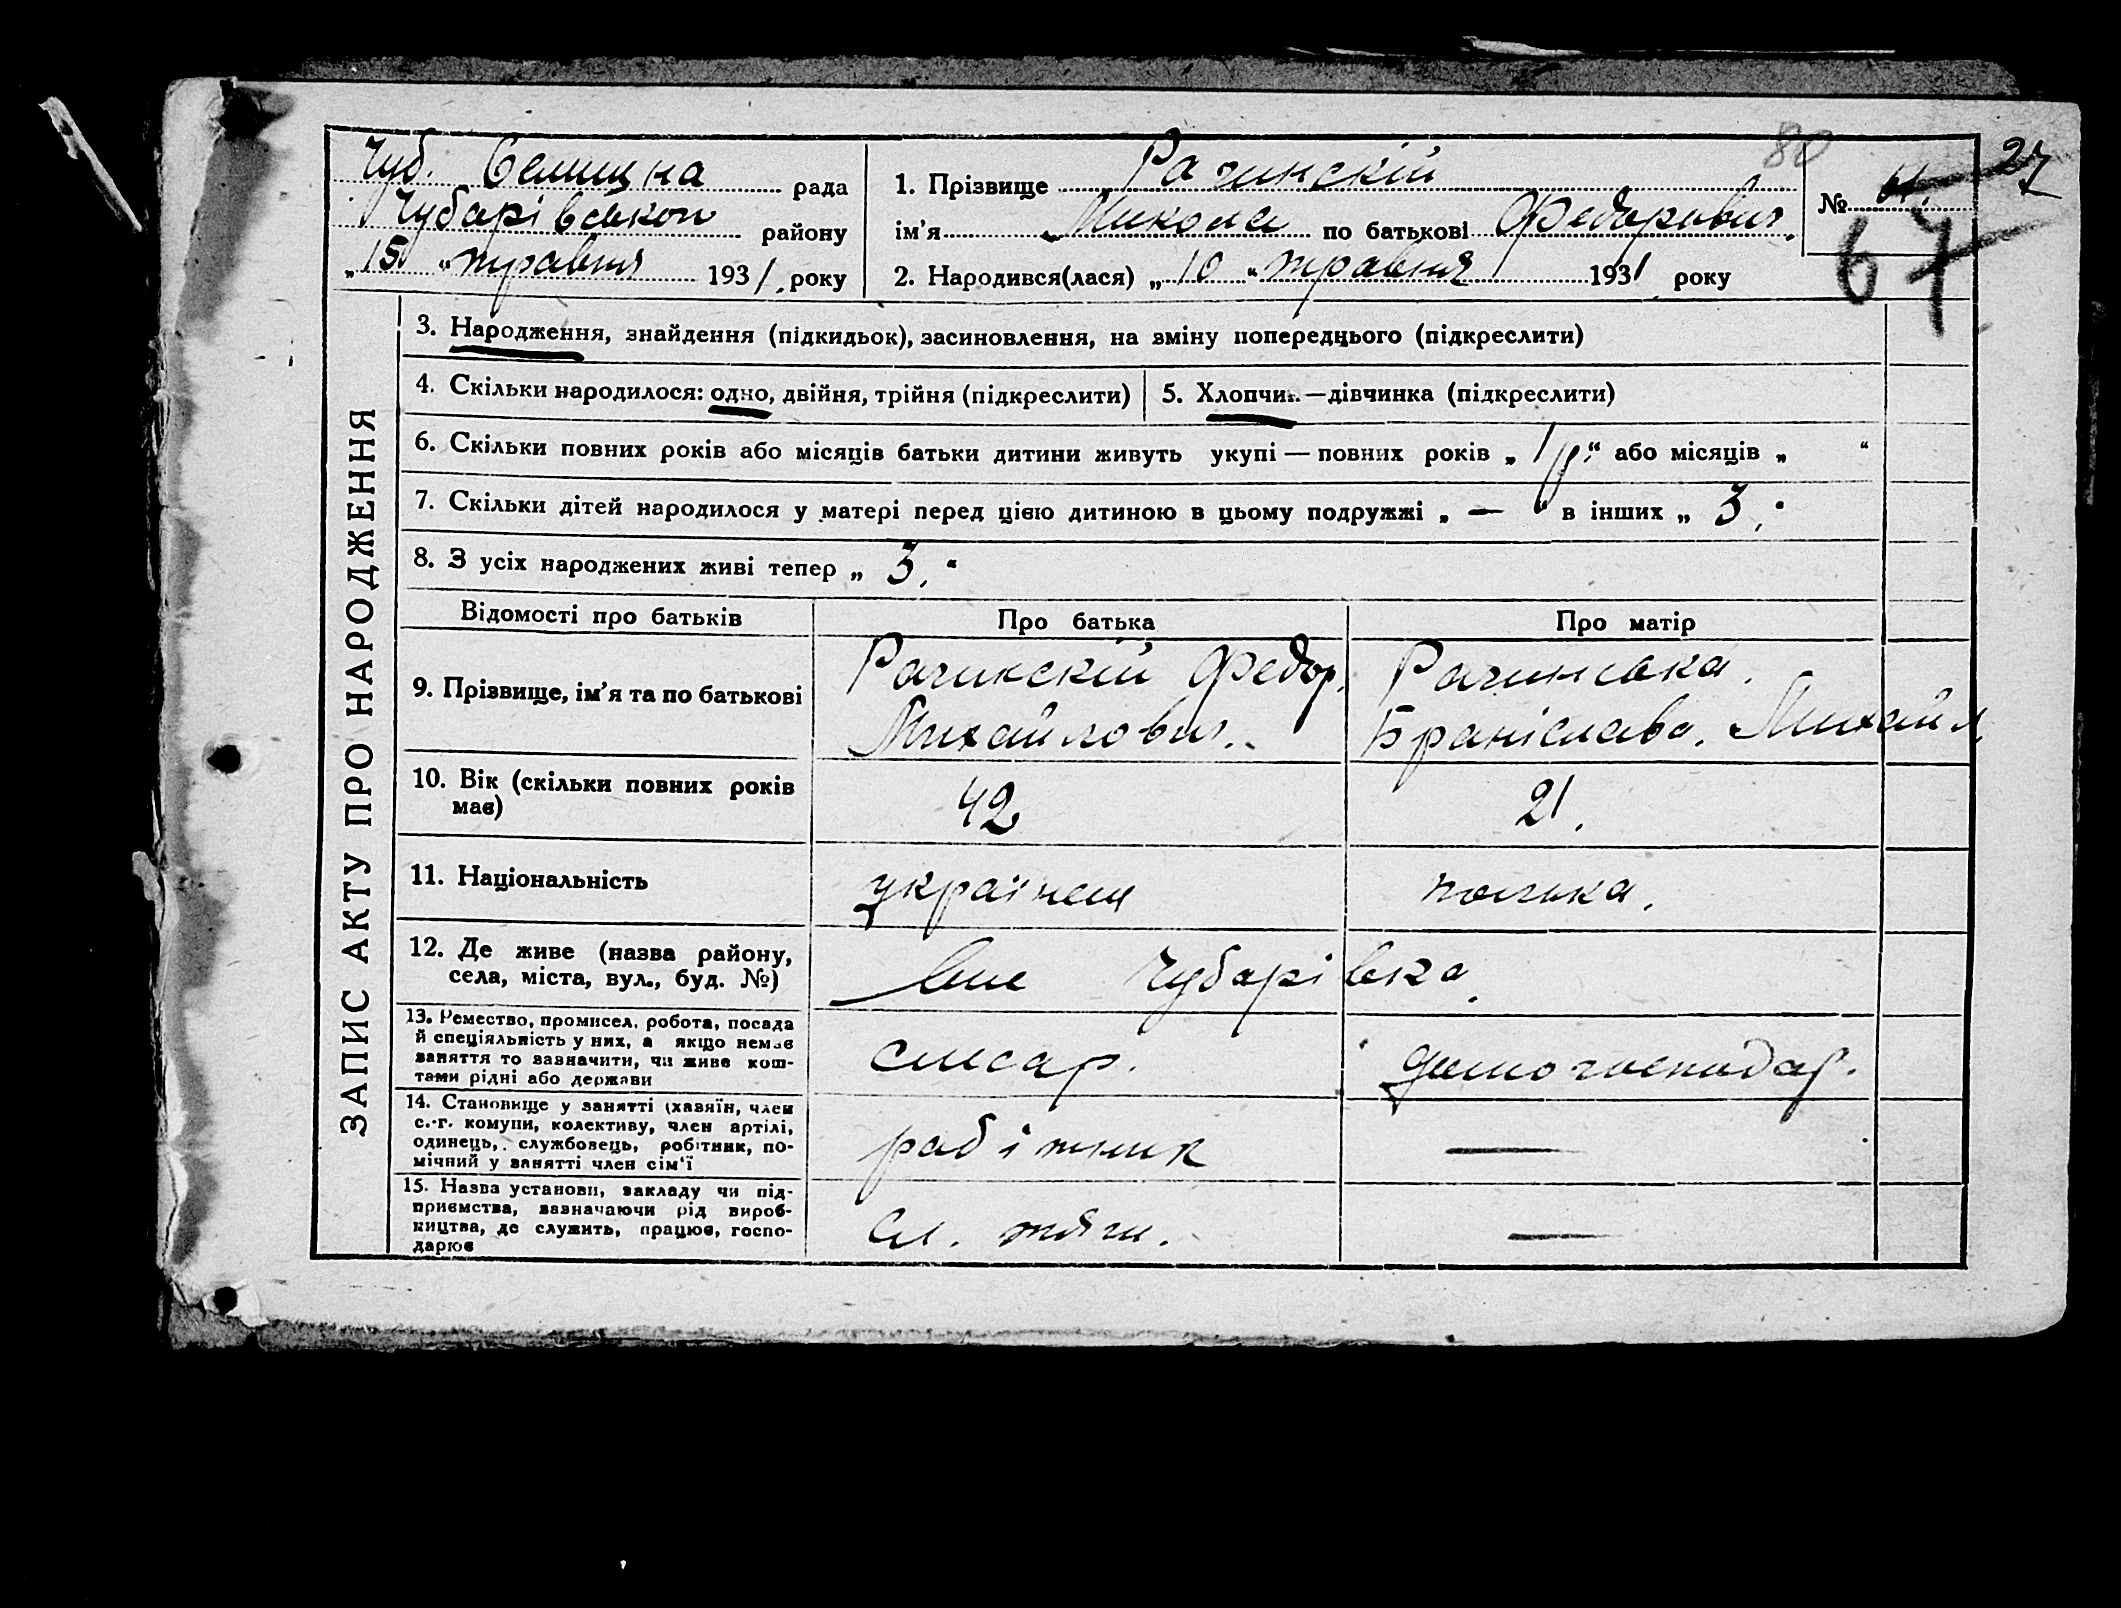 80
27
Чуб. Селищна рада
Чубарівськоп району
„15" травня 1931 року
1. Прізвище Рачинскій
ім'я Микола по батькові Федорович.
2. Народився(лася) „10" травня 1931 року
№
67
ЗАПИС АКТУ ПРО НАРОДЖЕННЯ
3. Народження, знайдення (підкидьок), засиновлення, на зміну попереднього (підкреслити)
4. Скільки народилося: одно, двійня, трійня (підкреслити)
5. Хлопчик—дівчинка (підкреслити)
6. Скільки повних років або місяців батьки дитини живуть укупі — повних років „ 1 р." або місяців „ "
7. Скільки дітей народилося у матері перед цією дитиною в цьому подружжі „ — " в інших „ 3."
8. З усіх народжених живі тепер „ 3."
Відомості про батьків
Про батька
Про матір
9. Прізвище, ім'я та по батькові
Рачинскій Федор.
Михайлович.
Рачинська.
Браніслава. Михайл
10. Вік (скільки повних років
має)
42
21.
11. Національність
українец
полька.
12. Де живе (назва району,
села, міста, вул., буд. №)
Чубарівка.
13. Ремество, промисел, робота, посада
й спеціяльність у них, а якщо немає
заняття то зазначити, чи живе кош-
тами рідні або держави
слесар.
домогосподар.
14. Становище у занятті (хазяїн, член
с.-г. комуни, колективу, член артілі,
одинець, службовець, робітник, по-
мічний у занятті член сім'ї
рабітник
—
15. Назва установи, закладу чи під-
приємства, зазначаючи рід вироб-
ництва, де служить, працює, госпо-
дарює
Сл. тяги.
—